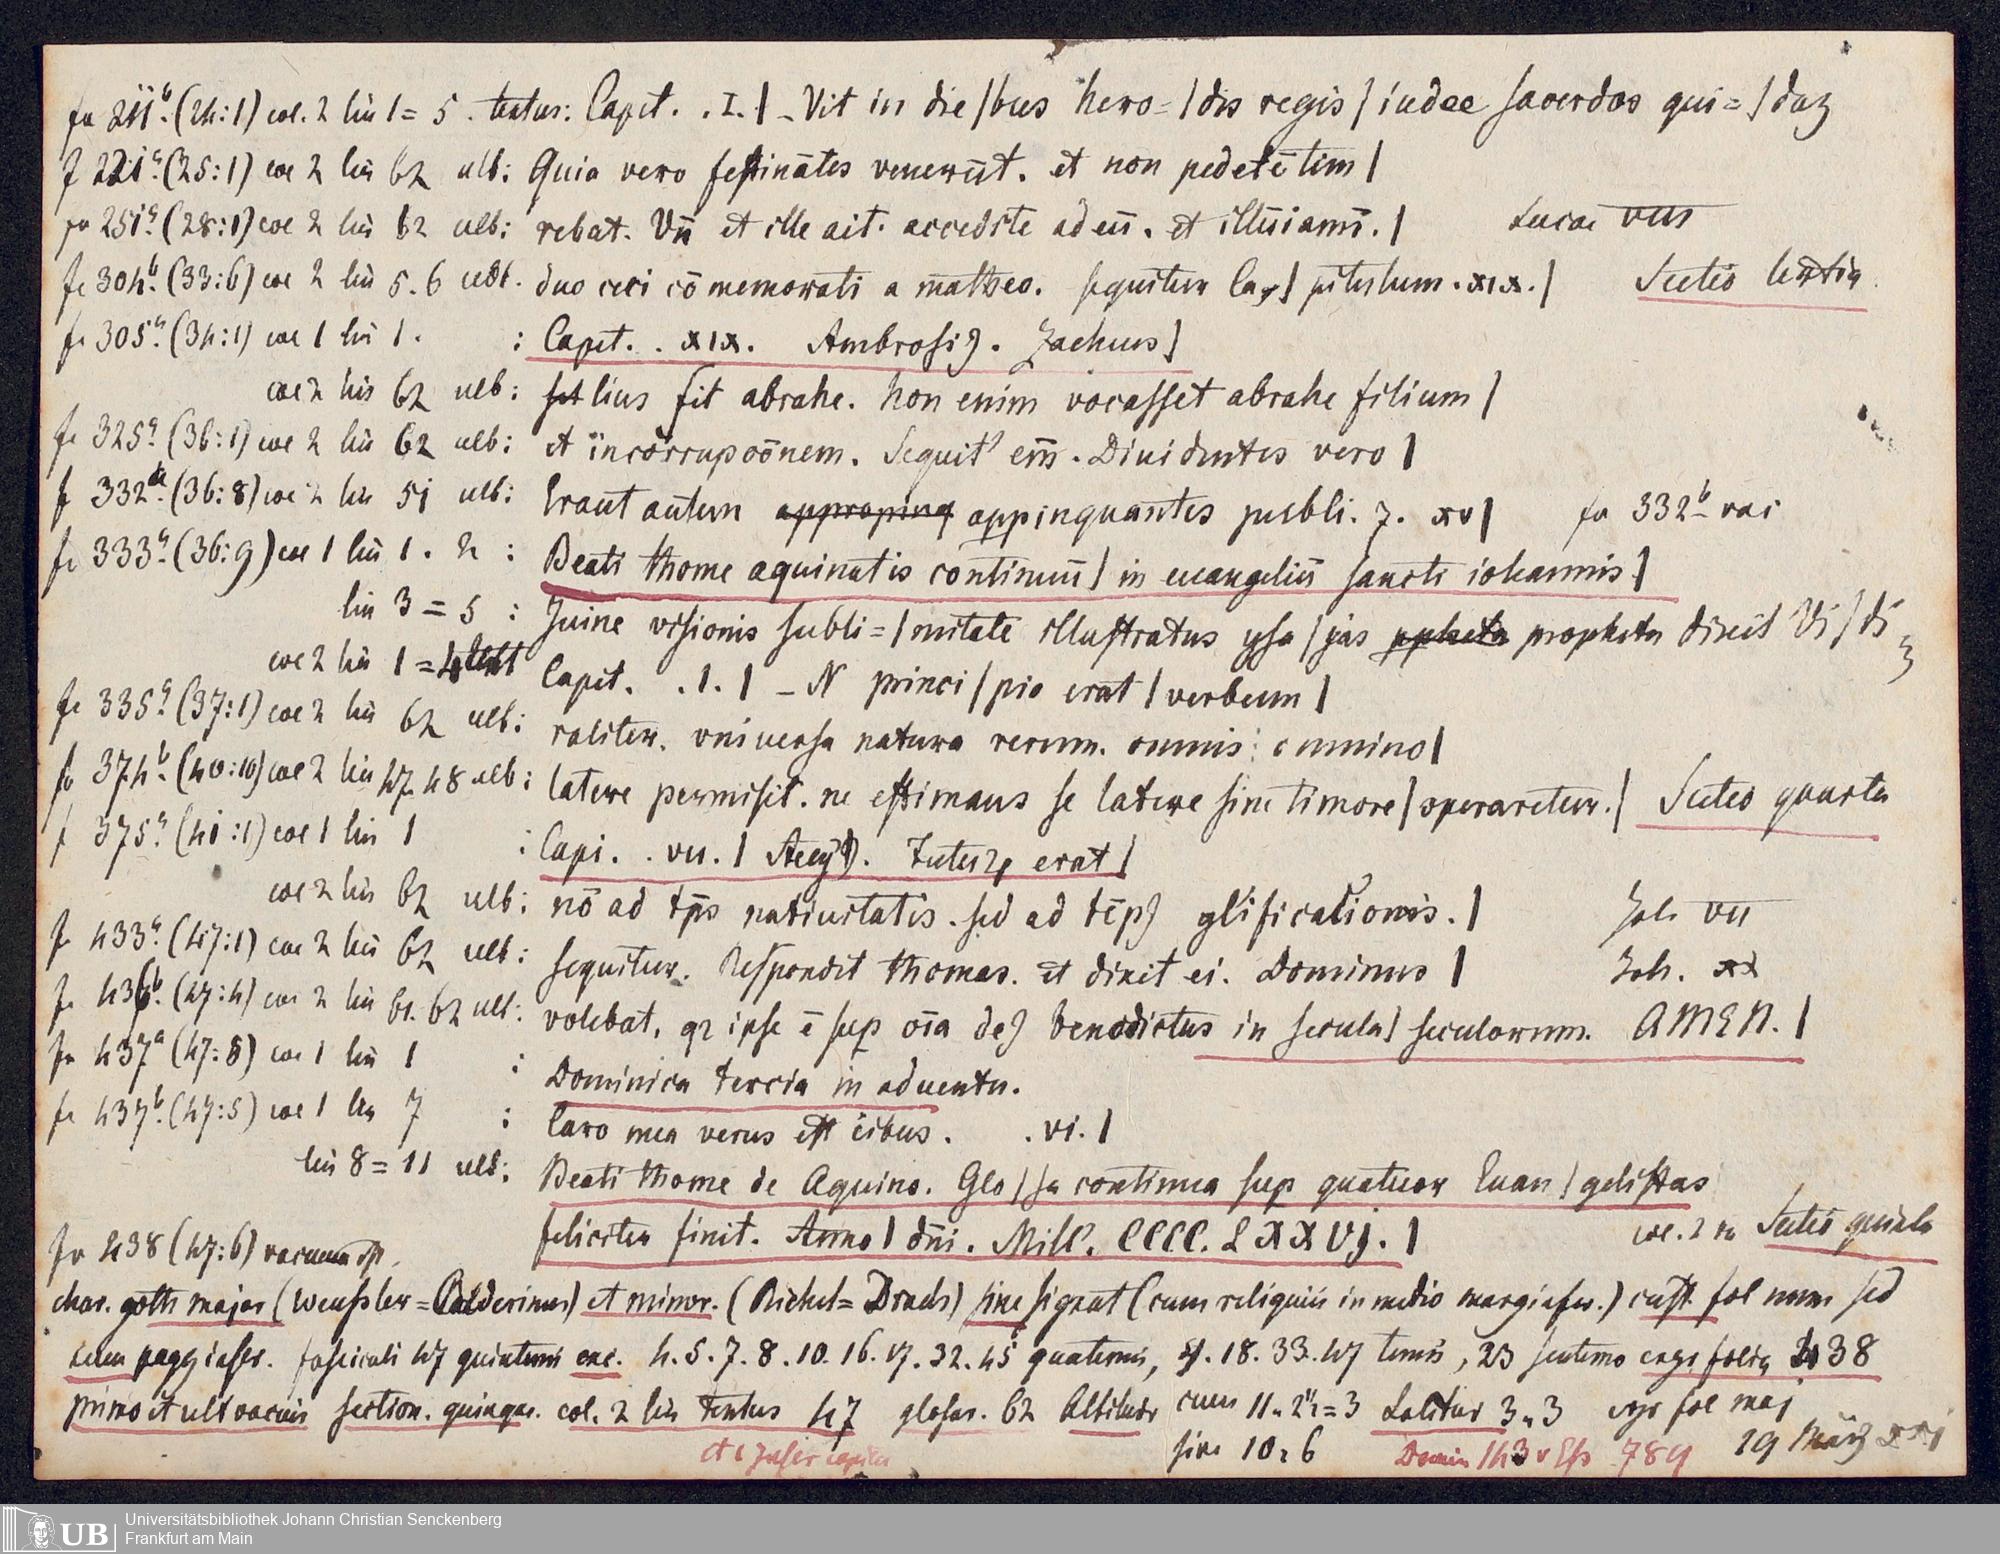 fo 211b. (24:1) col. 2 lin 1 = 5. textus: Capit. . I. | _ Vit in die | bus hero= | dis regis | iudee sacerdos qui= | daz
f 221a. (25:1) col 2 lin 62 ult: Quia vero festinātes venerūt. et non pedetētim |
fo 251a. (28:1) col 2 lin 62 ult: rebat. Vn̄ et ille ait. accedite ad eū. et illūiamī. | Lucae VIII
fo 304b. (33:6) col 2 lin 5. 6 ult. duo ceci cō memorati a matheo. sequitur Ca | pitulum. xix. | Sectio tertia
fo 305a. (34:1) col 1 lin 1. : Capit. . xix. Ambrosi9. Zacheus |
col 2 lin 62 ult: filius sit abrahe. Non enim vocasset abrahe filium |
fo 325a. (36:1) col 2 lin 62 ult: et incorrupcōnem. Sequit' em̄. Diuidentes vero |
f 332a. (36:8) col 2 lin 51 ult: Erant autem appinquantes publi. 7. xv | fo 332b vac
fo 333a. (36:9) col 1 lin 1. 2 : Beati thome aquinatis continuū | in euangeliū sancti iohannis |
lin 3 = 5 : Iuine visionis subli= | mitate illustratus ysa | jas propheta dixit Vi | di
col 2 lin 1 = 4 : Capit. . 1. | _ N princi | pio erat | verbum |
fo 335a. (37:1) col 2 lin 62 ult: raliter. vniuersa natura rerum. omnis: omnino |
fo 374b. (40:10) col 2 lin 47. 48 ult: latere permisit. ne estimans se latere sine timore | operaretur. | Sectio quarta
f 375a. (41:1) col 1 lin 1 : Capi. . vii. | erat |
col 2 lin 62 ult: nō ad tp̄s natiuitatis. sed ad tēp9 glificationis. | Joh VII
fo 433a. (47:1) col 2 lin 62 ult: sequitur. Respondit thomas. et dixit ei. Dominus | Joh. xx
fo 436b. (47:4) col 2 lin 61. 62 ult: volebat, q2 ipse ē sup oīa de9 benedictus in secula | seculorum. AMEN. |
fo 437a (47:5) col 1 lin 1 : Dominica tercia in aduentu.
fo 437b. (47:5) col 1 lin 7 : Caro mea verus est cibus. . vi. |
lin 8 = 11 ult: Beati thome de Aquino. Glo | sa continua sup quatuor Euan | gelistas
feliciter finit. Anno | dn̄i. Mill. CCCC. LXXVj. | col. 2 Sectio quinta
fo 438 (47:6) vacuum
char. goth major (Wenssler = Balderinus) et minor. (Richel = Drach) sine signat (cum reliquiis in medio margi infer.) cust. fol num sed
pagg infer. fasciculi 47 quinterni exc. 4. 5. 7. 8. 10. 16. 17. 32. 45 quaterni, 18. 33. 47 terni, 23 ergo folia 438
primo et ult vacuis section. quinque. col. 2 lin textus 47 glosae. 62 Altitudo cum 11 Latitud 3 ergo fol maj
et c Jnser capita sive 10 6 789 19 März
Universitätsbibliothek Johann Christian Senckenberg
Frankfurt am Main
UB